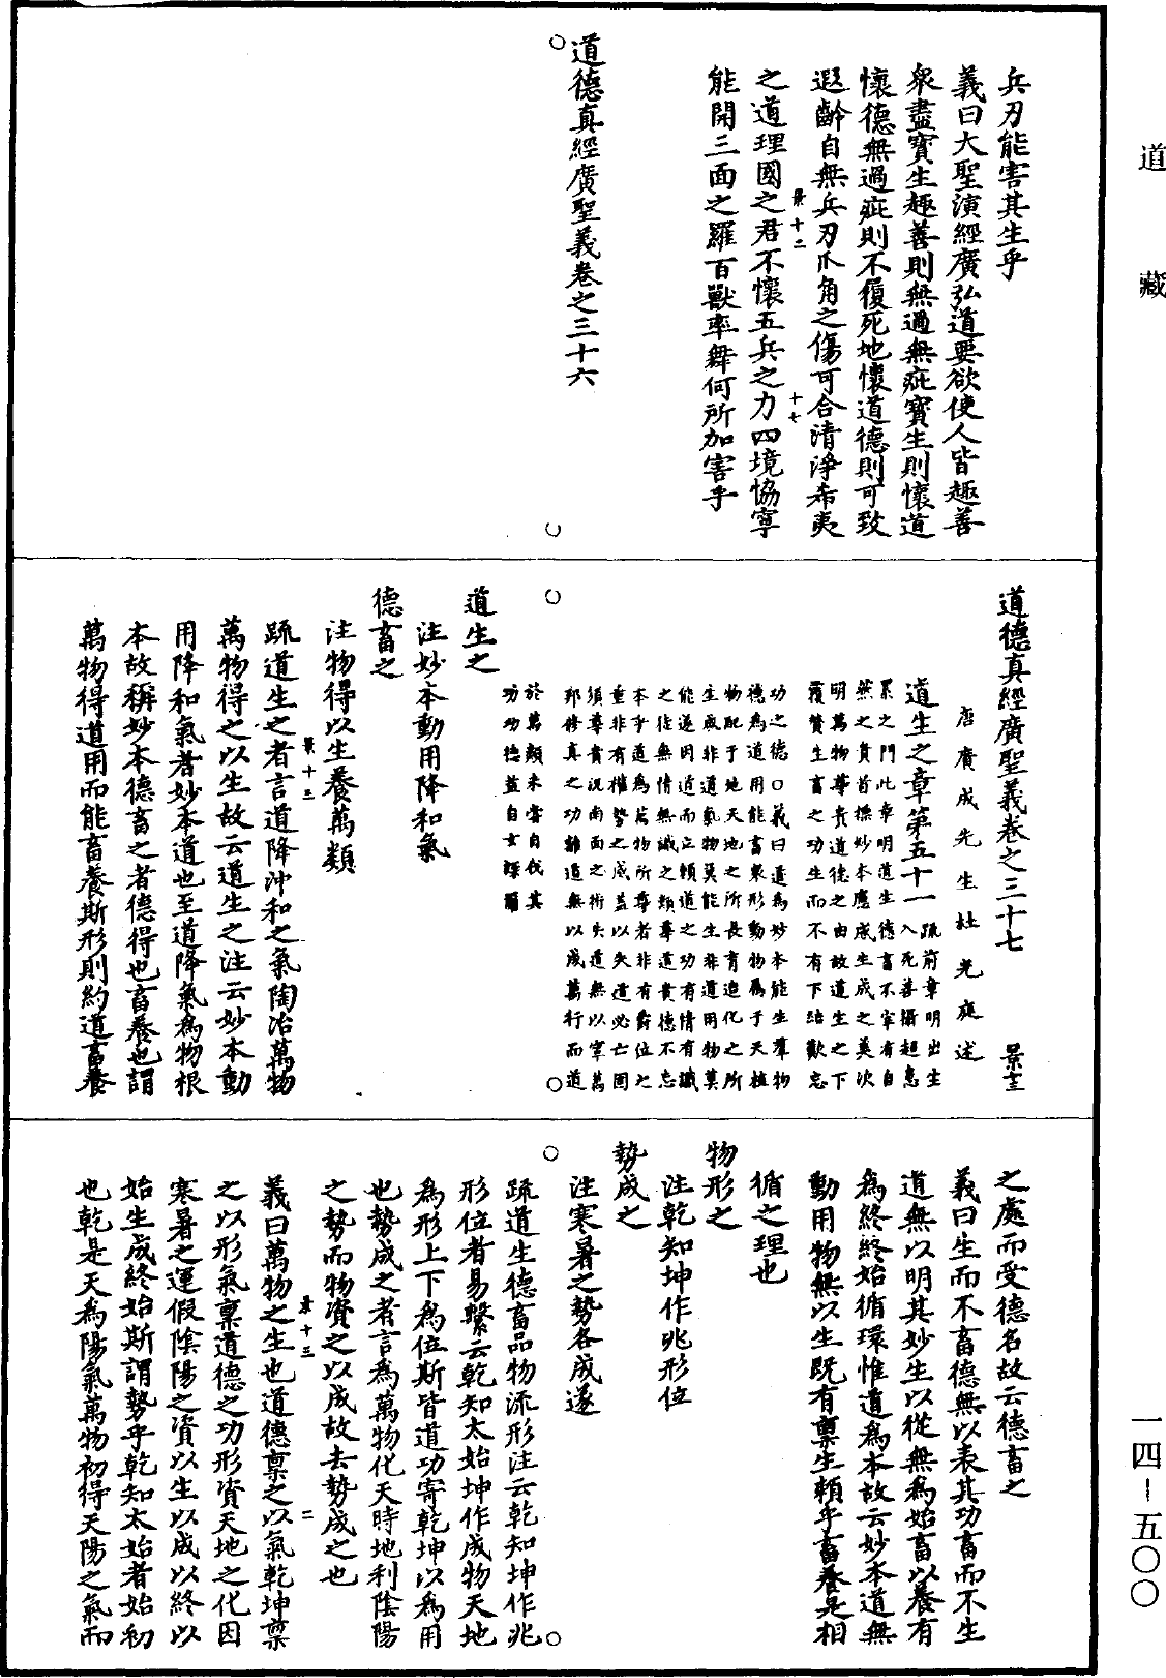 道藏
兵刃能害其生乎
義曰大聖演經廣弘道要欲使人皆趣善
衆盡寶生趣善則無過無疵寶生則懷道
懷德無過疵則不履死地懷道德則可致
遐齡自無兵刃爪角之傷可合清淨希夷
景十二 十七
之道理國之君不懷五兵之力四境協寧
能開三面之羅百獸率舞何所加害乎
道德真經廣聖義卷之三十六
道德真經廣聖義卷之三十七 景十三
唐廣成先生杜光庭述
道生之章第五十一
疏前章明出生
入死善攝超患
累之門此章明道生德畜不宰有自
然之貴首標妙本應感生成之美次
明萬物尊貴道德之由故道生之下
覆贊生畜之功生而不有下結歎忘
功之德○義曰道為妙本能生羣物
德為道用能畜衆形動物屬于天植
物配于地天地之所長育造化之所
生成非道氣物莫能生非道用物莫
能遂因道而立賴道之功有情有識
之徒無情無識之類尊道貴德不忘
本乎道為萬物所尊者非有爵位之
重非有權勢之威蓋以失道必亡固
須尊貴況南面之術失道無以宰萬
邦修真之功離道無以成萬行而道
於萬類未嘗自伐其
功功德蓋自玄謀爾
道生之
注妙本動用降和氣
德畜之
注物得以生養萬類
疏道生之者言道降沖和之氣陶冶萬物
景十三
萬物得之以生故云道生之注云妙本動
用降和氣者妙本道也至道降氣為物根
本故稱妙本德畜之者德得也畜養也謂
萬物得道用而能畜養斯形則約道畜養
之處而受德名故云德畜之
義曰生而不畜德無以表其功畜而不生
道無以明其妙生以從無為始畜以養有
為終終始循環惟道為本故云妙本道無
動用物無以生既有稟生賴乎畜養是相
循之理也
物形之
注乾知坤作兆形位
勢成之
注寒暑之勢各成遂
疏道生德畜品物流形注云乾知坤作兆
形位者易繫云乾知太始坤作成物天地
為形上下為位斯皆道功寄乾坤以為用
也勢成之者言為萬物化天時地利陰陽
之勢而物資之以成故去勢成之也
景十三 二
義曰萬物之生也道德稟之以氣乾坤稟
之以形氣稟道德之功形資天地之化因
寒暑之運假陰陽之資以生以成以終以
始生成終始斯謂勢乎乾知太始者始初
也乾是天為陽氣萬物初得天陽之氣而
一四－五〇〇